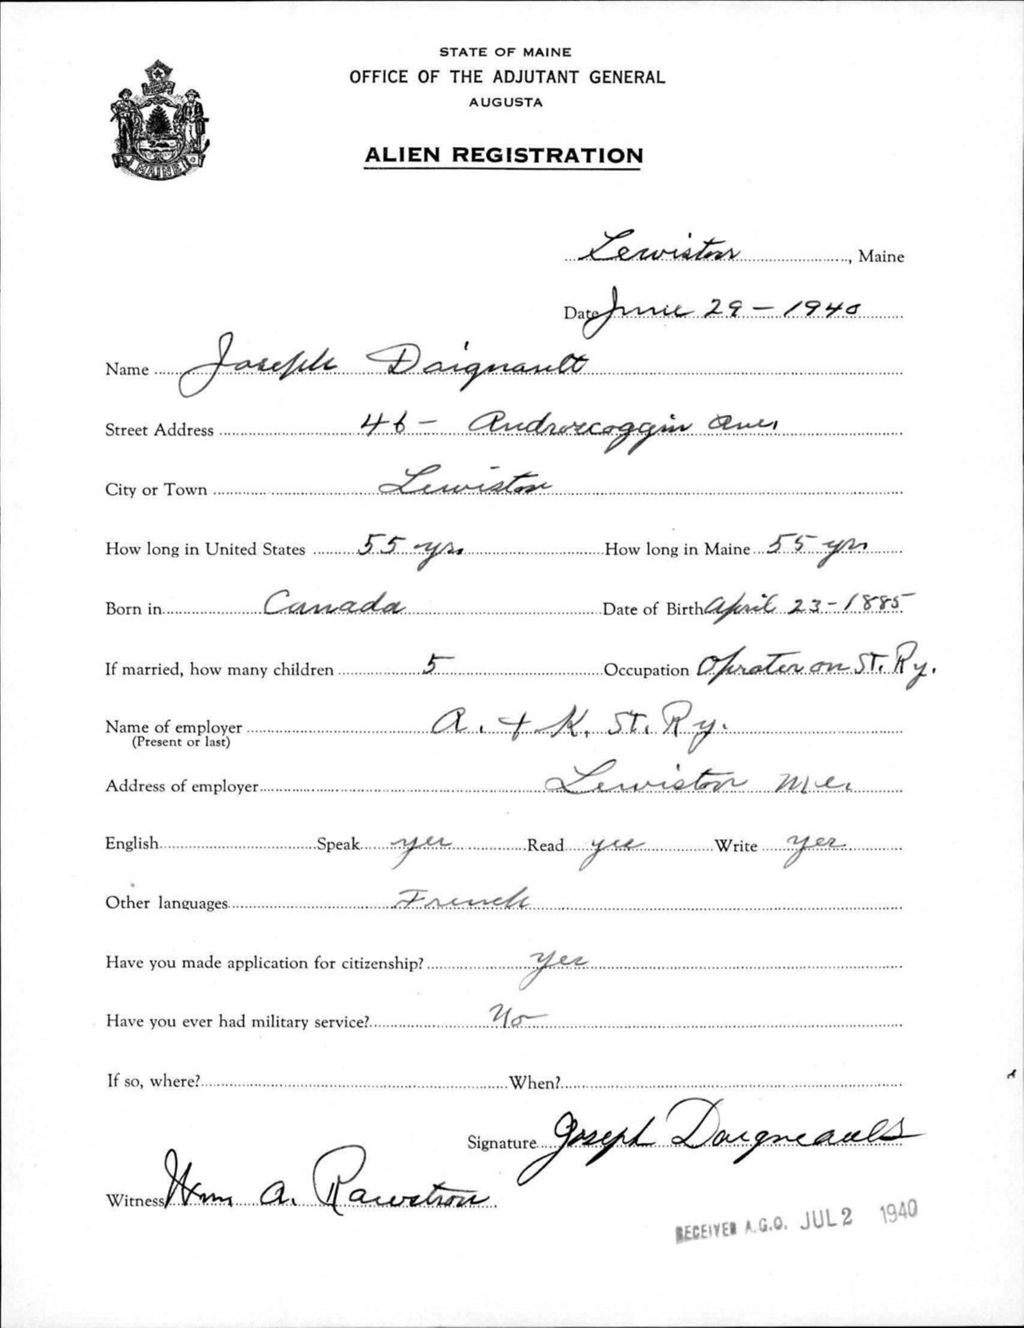 STATE OF MAINE
OFFICE OF THE ADJUTANT GENERAL
AUGUSTA
ALIEN REGISTRATION
MAINE
Lewiston, Maine
Date June 29 - 1940
Name Joseph Daignault
Street Address 46 - Androscoggin Ave.
City or Town Lewiston
How long in United States 55 yrs. How long in Maine 55 yrs
Born in Canada Date of Birth April 23 - 1885
If married, how many children 5 Occupation Oprater on St. Ry.
Name of employer A. & K. St. Ry.
(Present or last)
Address of employer Lewiston Me.
English Speak yes Read yes Write yes
Other languages French
Have you made application for citizenship? Yes
Have you ever had military service? No
If so, where? When?
Signature Joseph Daigneault
Witness Wm A. Rawstron
RECEIVED A.G.O. JUL 2 1940